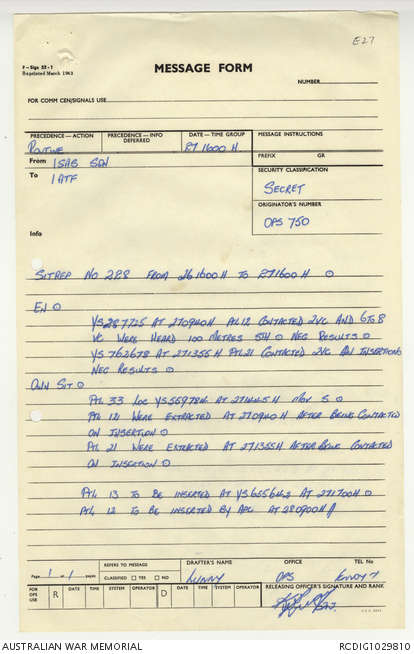 E27
F—Sigs 52-1
Reprinted March 1963
MESSAGE FORM
NUMBER
FOR COMM CEN/SIGNALS USE
PRECEDENCE—ACTION
PRECEDENCE—INFO DEFERRED
DATE—TIME GROUP
MESSAGE INSTRUCTIONS
ROUTINE
271600 H
PREFIX GR
From 1 SAS SQN
SECURITY CLASSIFICATION
To 1 ATF
SECRET
ORIGINATOR'S NUMBER
OPS 750
Info
SITREP NO 288 FROM 261600 H TO 271600 H O
EN O
YS287725 AT 270940H PTL12 CONTACTED 2VC AND 6TO8
VC WERE HEARD 100 METRES STH O NEG RESULTS O
YS762678 AT 271355H PTL21 CONTACTED 2VC ON INSERTION O
NEG RESULTS O
OWN SIT O
PTL 33 LOC AT 271445H MOV S O
PTL 121 WERE EXTRACTED AT 270940H AFTER BEING CONTACTED
ON INSERTION O
PTL 21 WERE EXTRACTED AT 271355H AFTER BEING CONTACTED
ON INSERTION O
PTL 13 TO BE INSERTED AT AT 271700H O
PTL 12 TO BE INSERTED BY APC AT 280900H
Page 1 of 1 pages
REFERS TO MESSAGE
CLASSIFIED YES NO
DRAFTER'S NAME
OFFICE
OPS
TEL No
FOR OPS USE
R
DATE
TIME
SYSTEM
OPERATOR
D
DATE
TIME
SYSTEM
OPERATOR
RELEASING OFFICER'S SIGNATURE AND RANK
AUSTRALIAN WAR MEMORIAL
RCDIG1029810